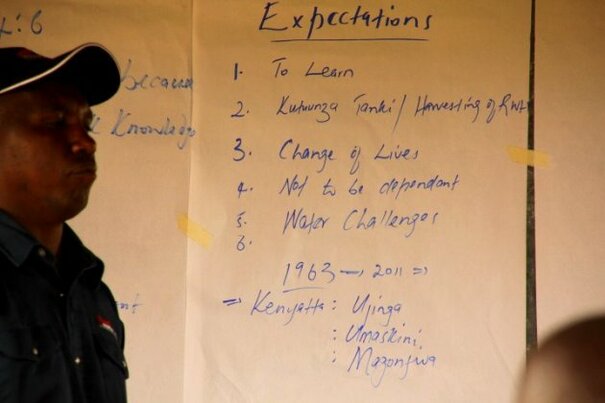 Expectations
1. To Learn
2. Kutunza Tanki/ Harvesting of RWH
3. Change of Lives
4. Not to be dependant
5. Water Challenges
6.
1963 → 2011 ⇒
⇒ Kenyatta : Ujinga
: Umaskini
: Magonjwa
: 6
because
Knowledge